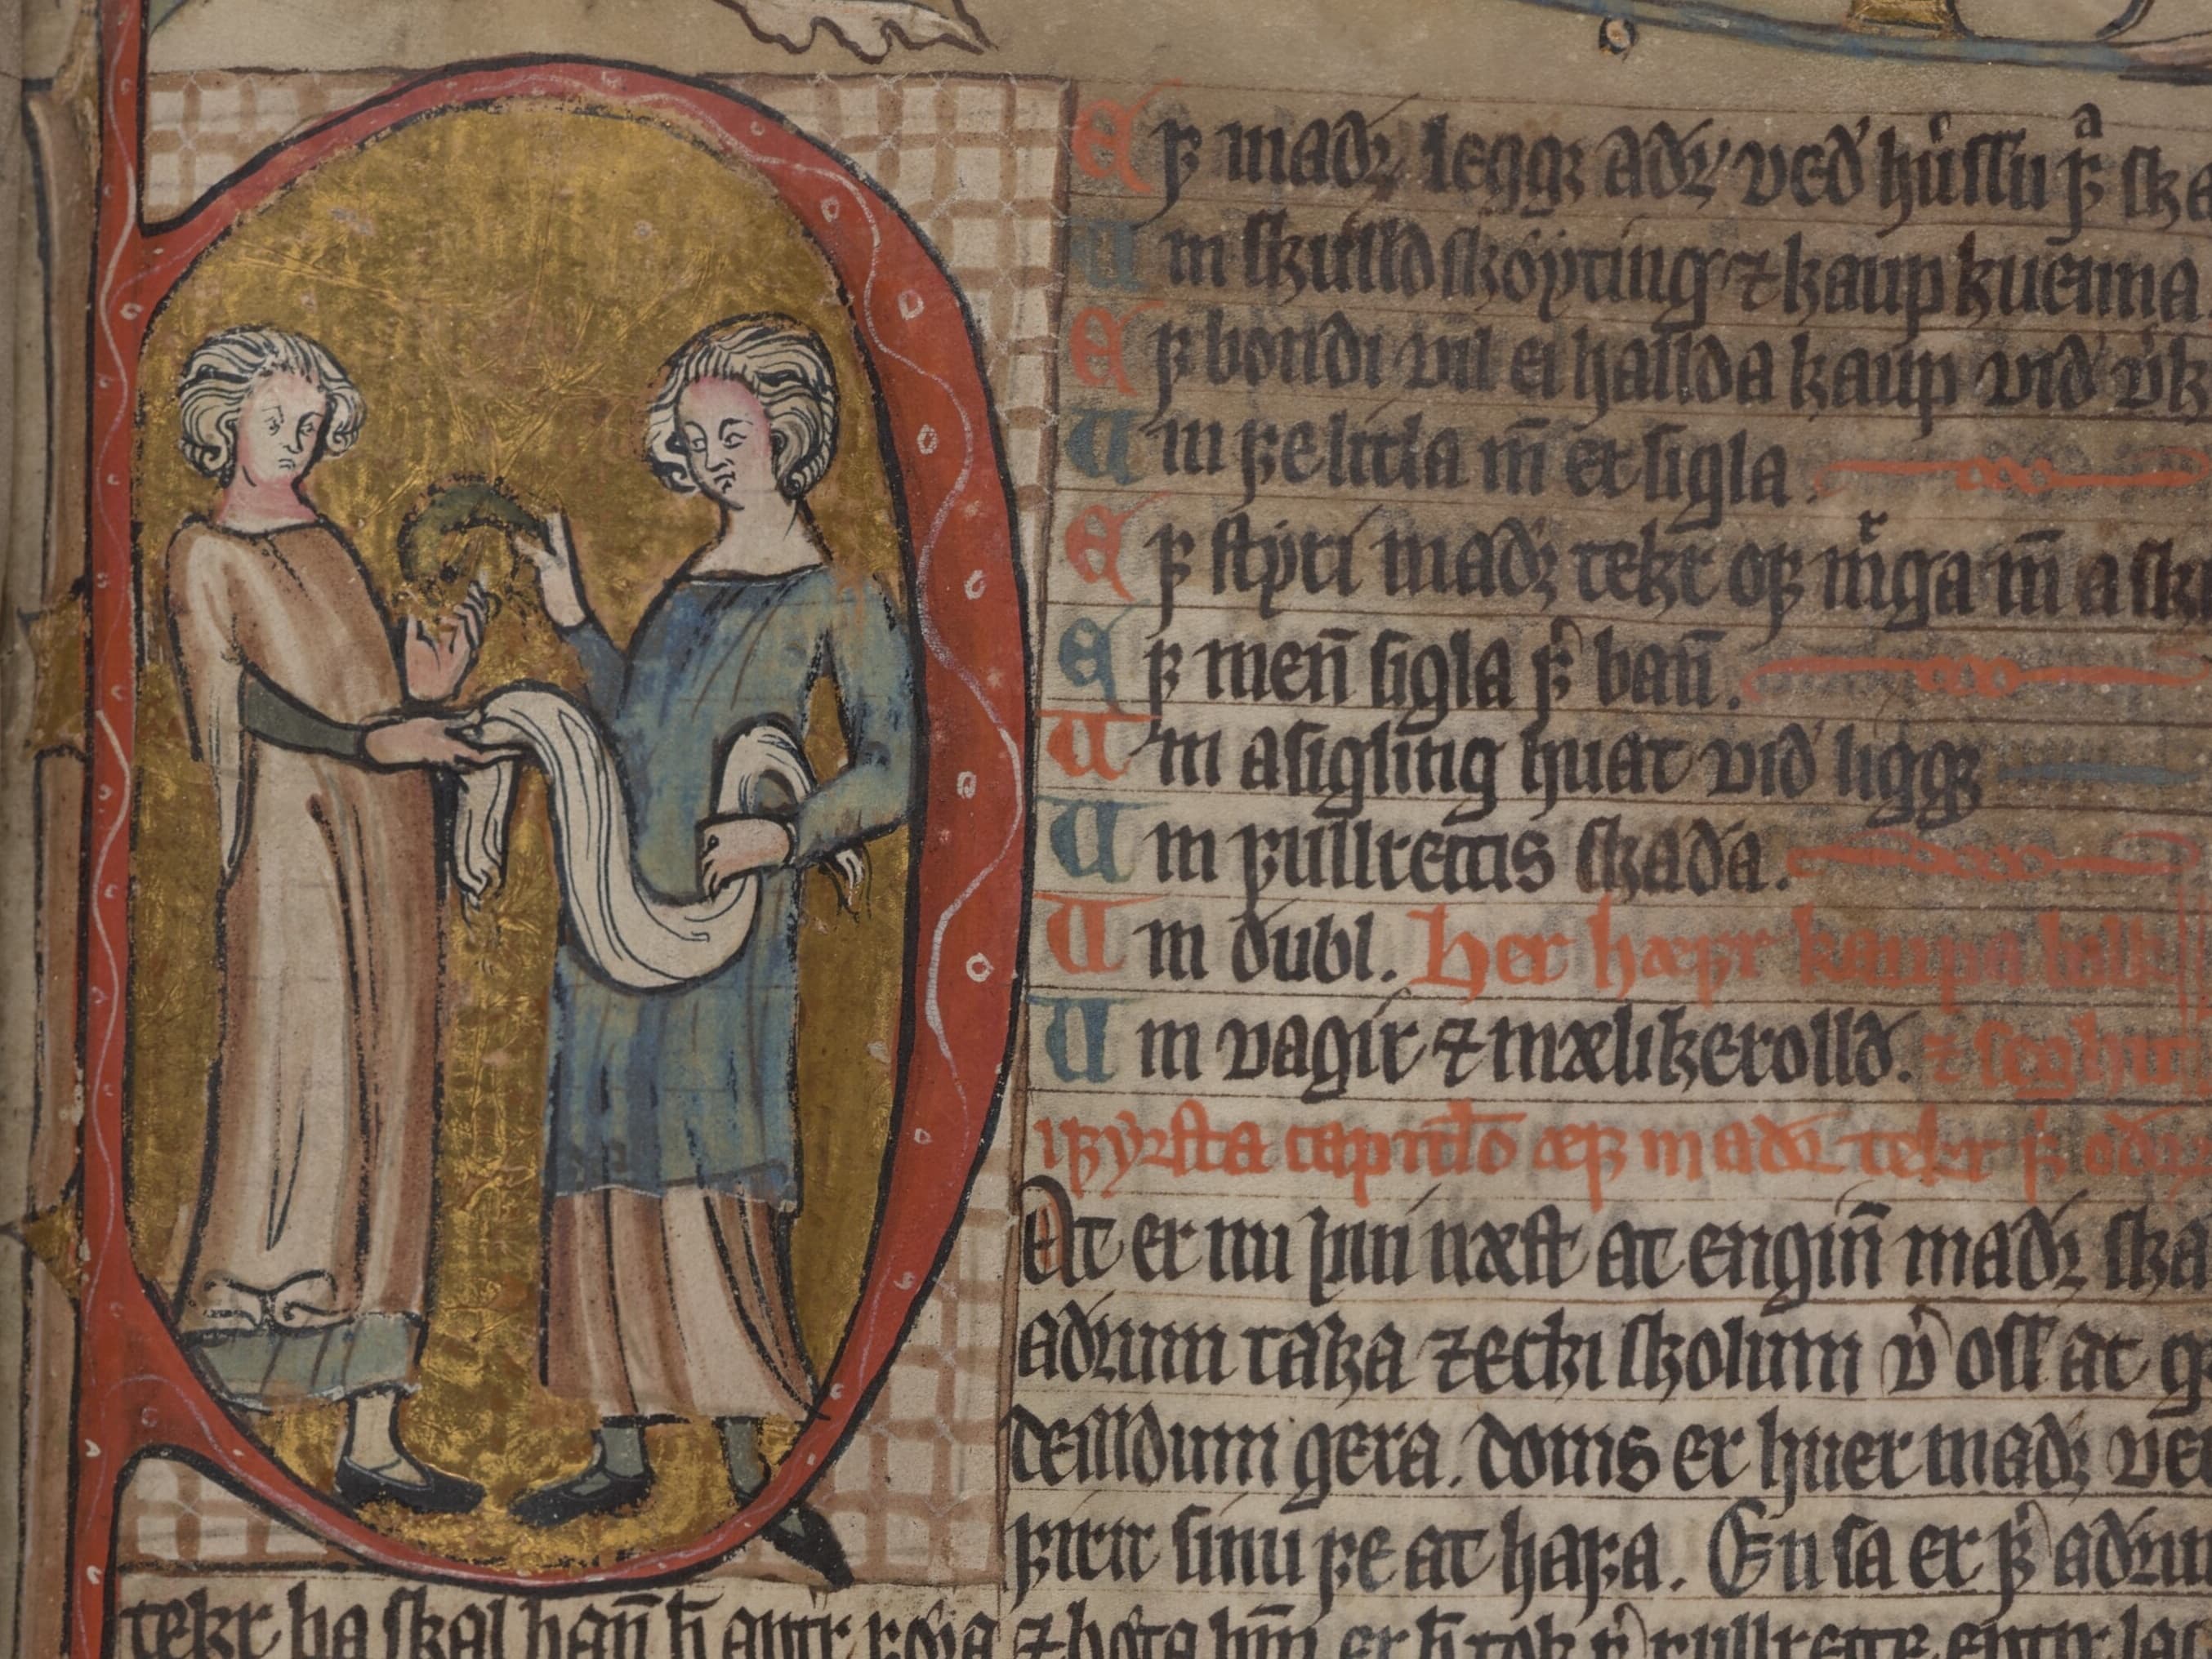 Eꝼ madꝛ leggꝛ adꝛ ved hůſſu ꝼᷓ ſka
Um ſkulld ſkóẏting ⁊ kaup kuenna
Eꝼ bondi uil ei hallda kaup uid
Um ꝼelitla m̄ et sigla.
Eꝼ ſtẏri madꝛ tekr oꝼ mᷣga m̄ a ſk
Eꝼ men̄ sigla ꝼ͛ ban̄.
Um asigling huat uid liggꝛ
Um ꝼullrettis skada.
Um dubl. Her hæꝼr kaupa balk
Um vagir ⁊ mælikerolld. ⁊ seghir
iꝼẏrsta capitulo æꝼ madꝛ tekr ꝼ͛
Þat er nu þui næſt at engin̄ madꝛ ſka
adꝛum taka ⁊ ecki ſkolum v͛ oſſ at g
deilldum gera. doms er huer madꝛ ve
ꝼirir sinu ꝼe at haꝼa. En sa er ꝼ͛ adꝛu
tekr þa ſkal han̄ h̄ aptr ꝼǿra ⁊ bǿta hm̄ er h̄ tok ꝼ͛ ꝼullrette eptir lag